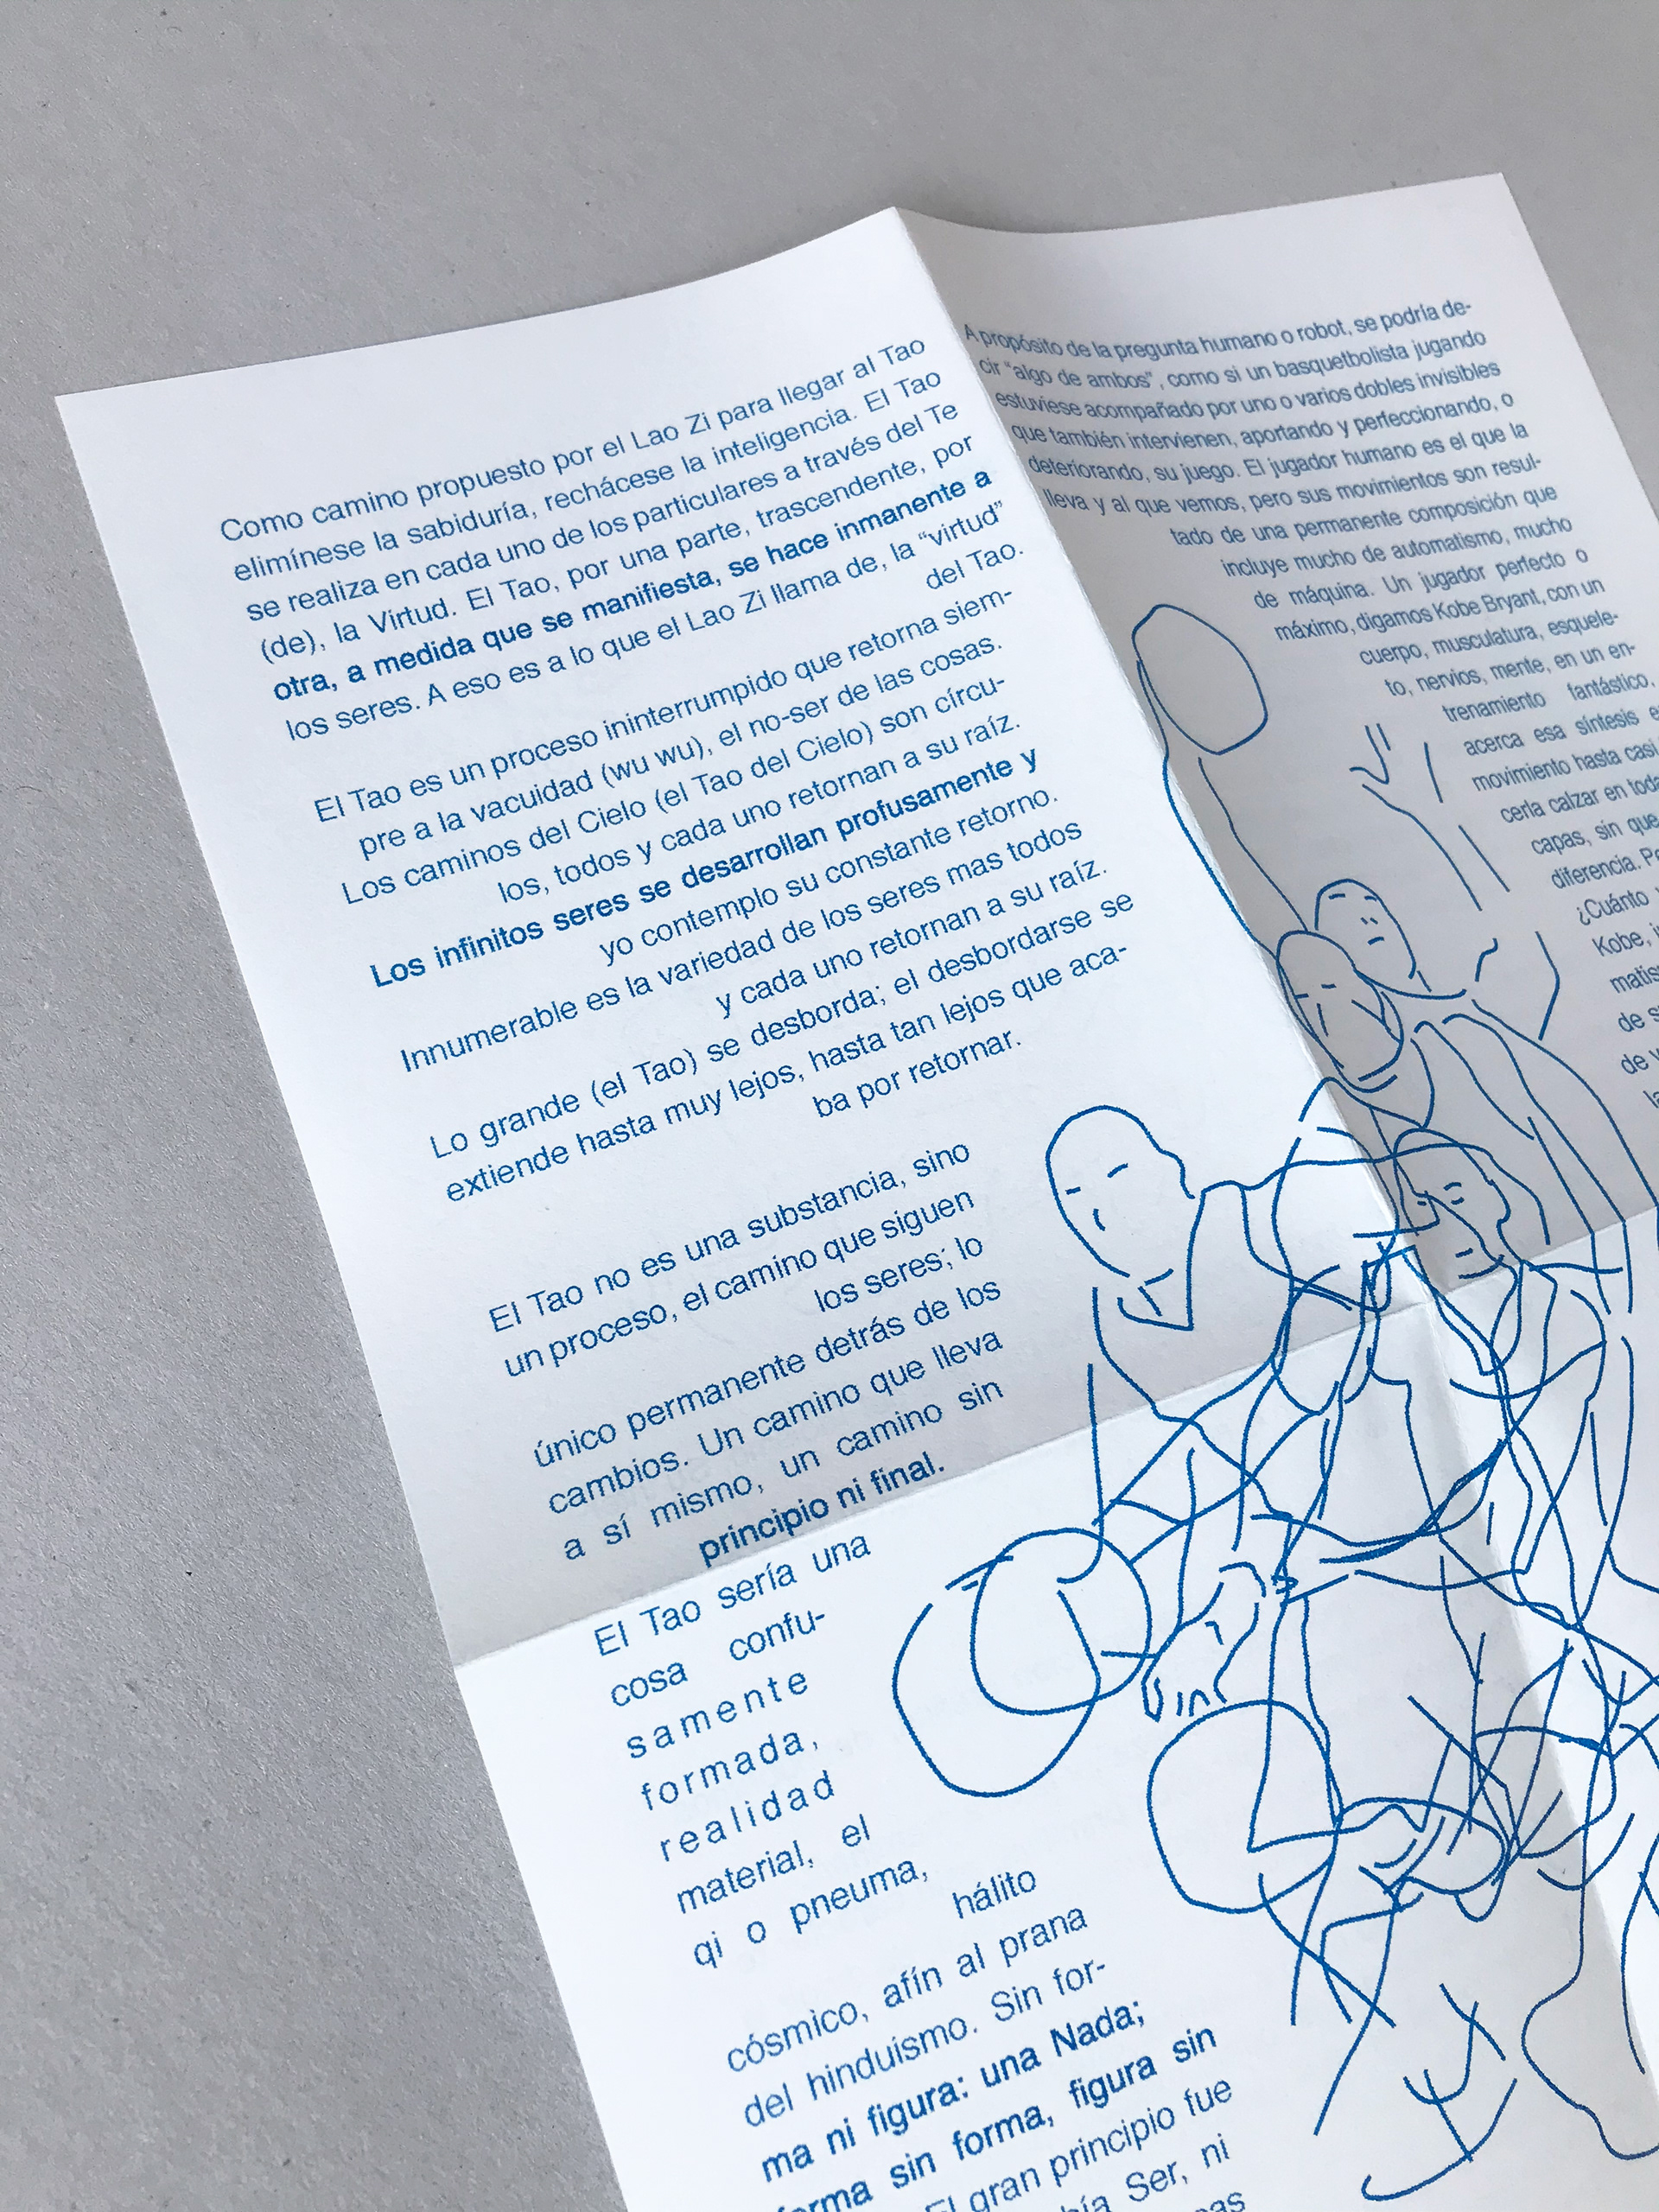 Como camino propuesto por el Lao Zi para llegar al Tao
elimínese la sabiduría, rechácese la inteligencia. El Tao
se realiza en cada uno de los particulares a través del Te
(de), la Virtud. El Tao, por una parte, trascendente, por
otra, a medida que se manifiesta, se hace inmanente a
los seres. A eso es a lo que el Lao Zi llama de, la “virtud”
del Tao.
El Tao es un proceso ininterrumpido que retorna siem-
pre a la vacuidad (wu wu), el no-ser de las cosas.
Los caminos del Cielo (el Tao del Cielo) son círcu-
los, todos y cada uno retornan a su raíz.
Los infinitos seres se desarrollan profusamente y
yo contemplo su constante retorno.
Innumerable es la variedad de los seres mas todos
y cada uno retornan a su raíz.
Lo grande (el Tao) se desborda; el desbordarse se
extiende hasta muy lejos, hasta tan lejos que aca-
ba por retornar.
El Tao no es una substancia, sino
un proceso, el camino que siguen
los seres; lo
único permanente detrás de los
cambios. Un camino que lleva
a sí mismo, un camino sin
principio ni final.
El Tao sería una
cosa confu-
samente
formada,
realidad
material, el
qi o pneuma,
hálito
cósmico, afín al prana
del hinduismo. Sin for-
ma ni figura: una Nada;
forma sin forma, figura sin
El gran principio fue
Ser, ni
A propósito de la pregunta humano o robot, se podría de-
cir “algo de ambos” , como si un basquetbolista jugando
estuviese acompañado por uno o varios dobles invisibles
que también intervienen, aportando y perfeccionando, o
deteriorando, su juego. El jugador humano es el que la
lleva y al que vemos, pero sus movimientos son resul-
tado de una permanente composición que
incluye mucho de automatismo, mucho
de máquina. Un jugador perfecto o
máximo, digamos Kobe Bryant, con un
cuerpo, musculatura, esquele-
to, nervios, mente, en un en-
trenamiento fantástico,
acerca esa síntesis
movimiento hasta casi
cerla calzar en
capas, sin que
diferencia.
¿Cuánto
Kobe,
de
de